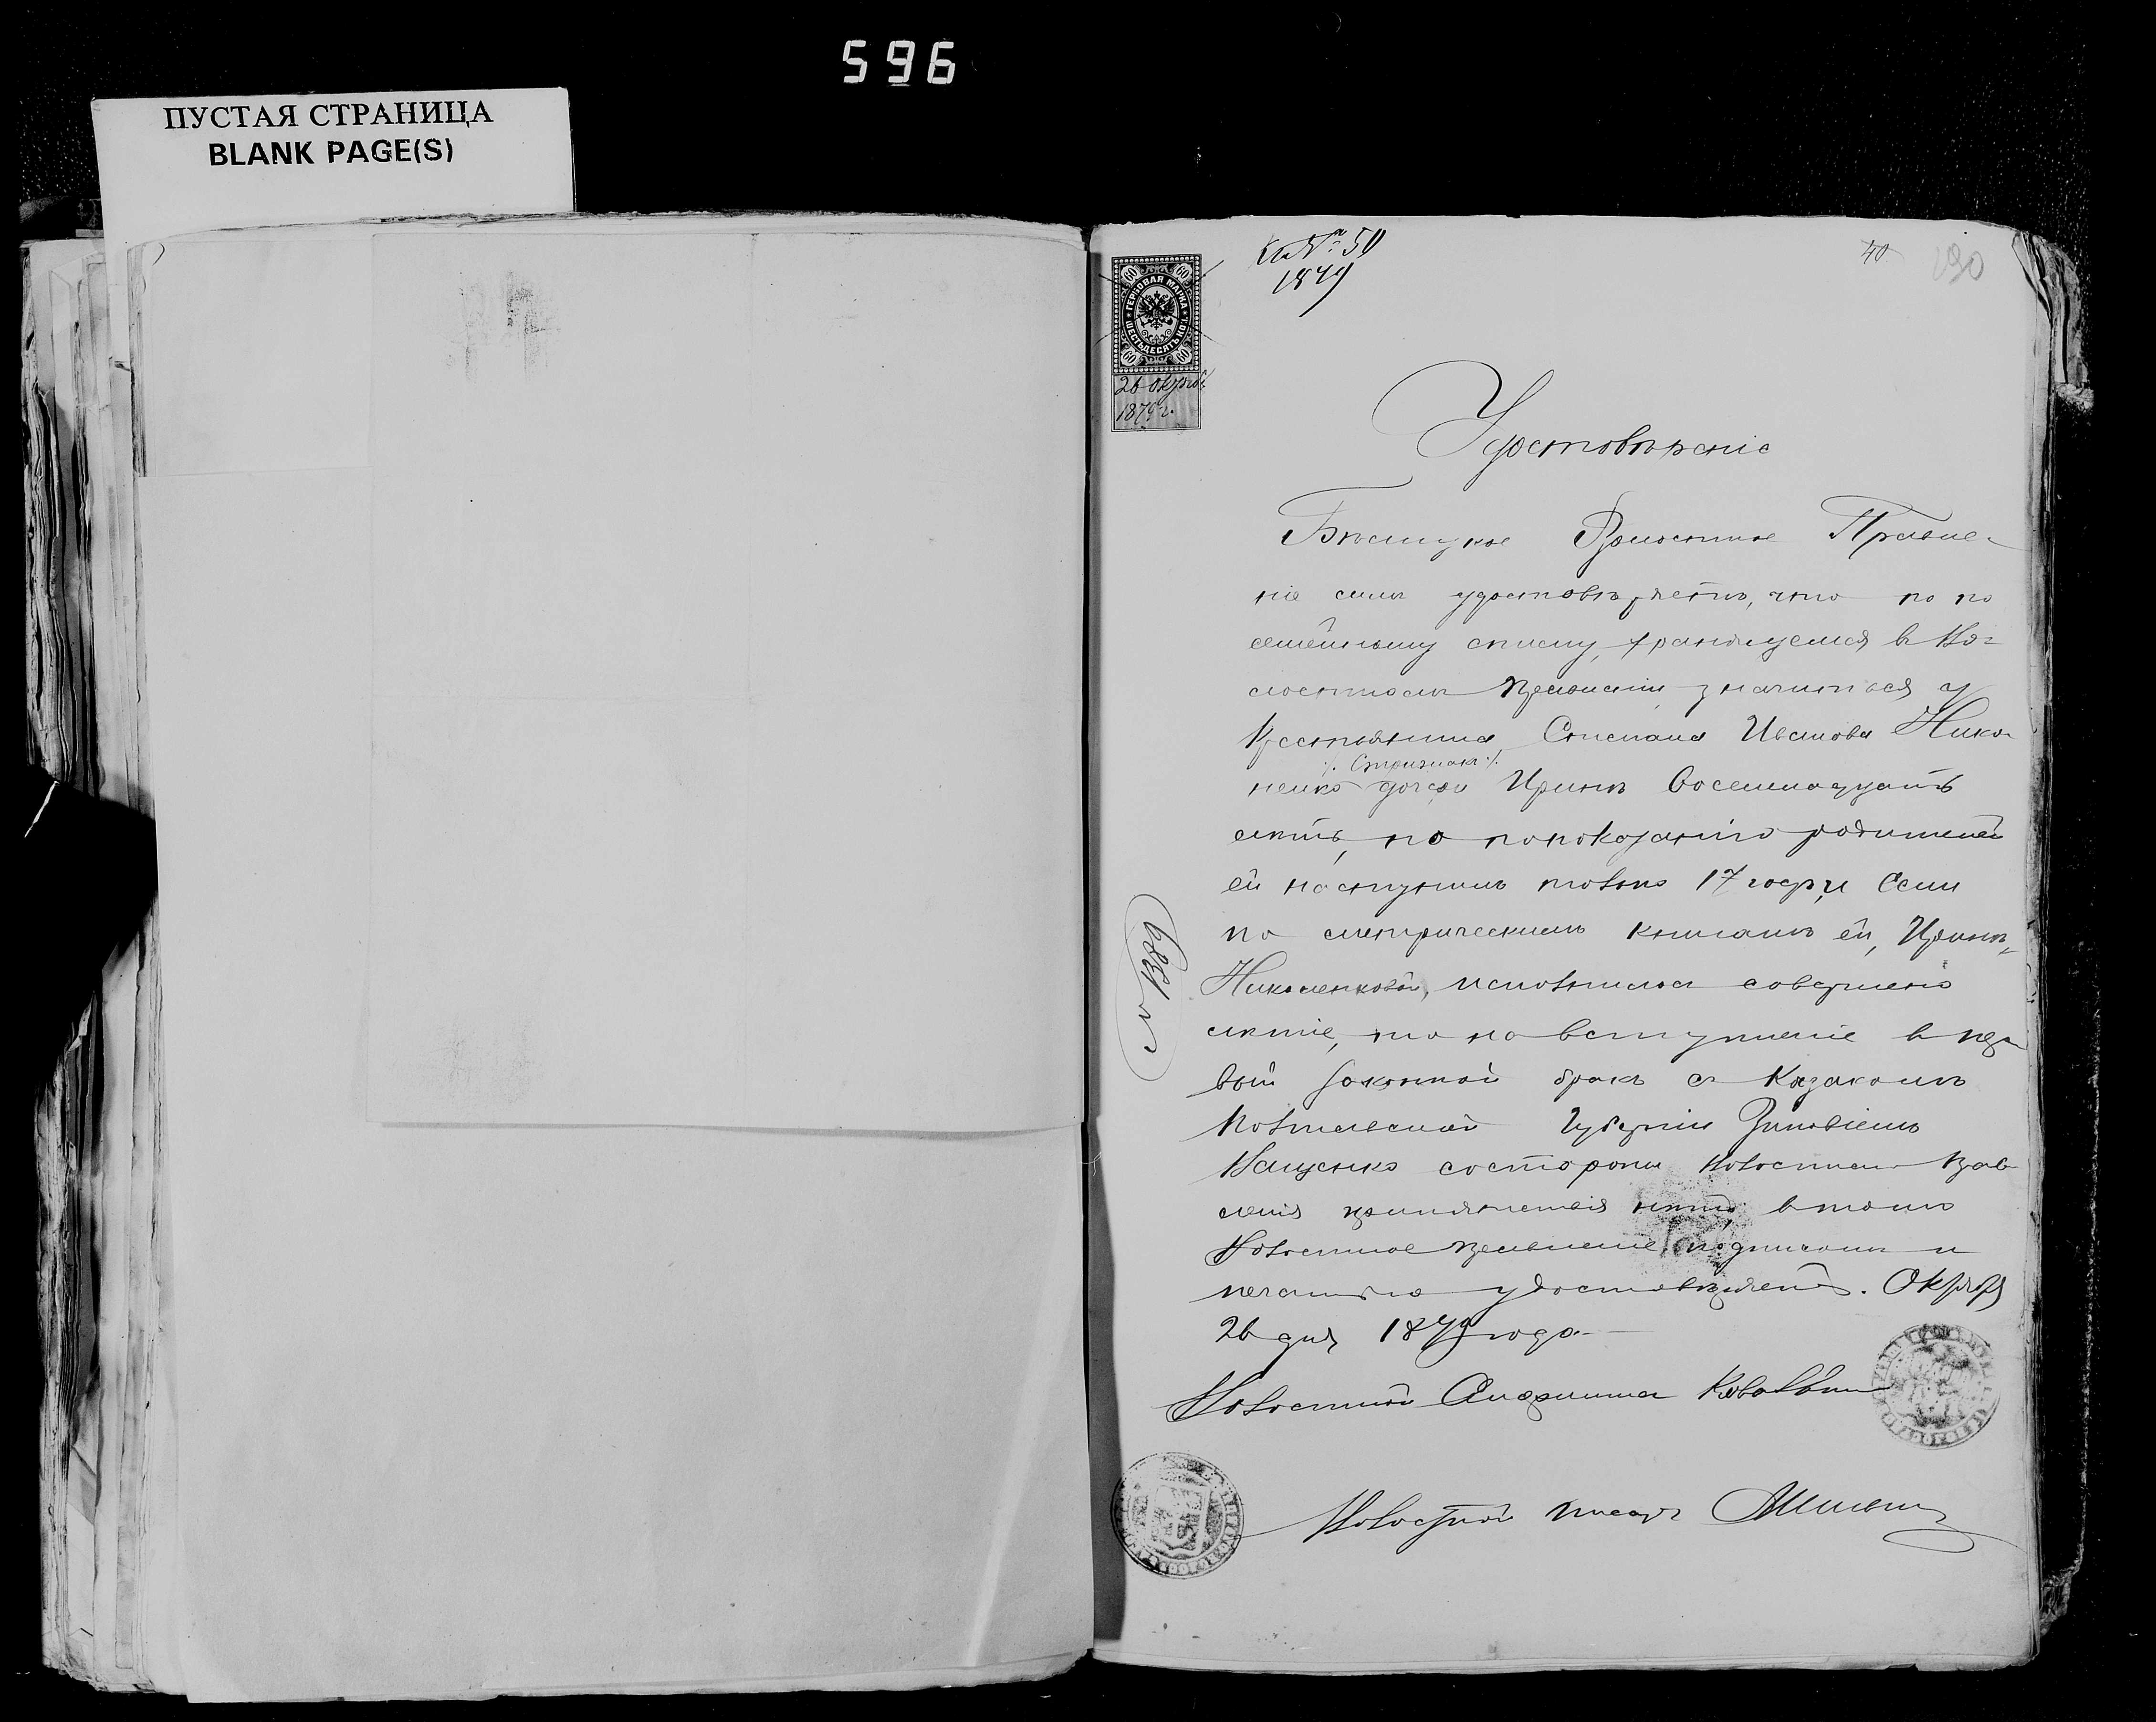 596
ПУСТАЯ СТРАНИЦА
BLANK PAGE(S)
№ 50
1879
40
190
60 60
ГЕРБОВАЯ МАРКА
ШЕСТЬДЕСЯТЪ КОП.
60 60
26 октяб.
1879 г.
Удостовѣреніе
Волостное Правле-
ніе симъ удостовѣряетъ, что по по
семейному списку, хранящемся в Во-
лостномъ Правленіи, значиться у
Крестьянина, Степана Иванова Нико-
./. Стрижака ./.
ненко дочери Иринѣ Восемнадцать
лѣтъ, но попоказанію родителей
ей наступилъ только 17 годъ, и Если
по метрическимъ книгамъ ей, Иринѣ
исполнилось совершено
лѣтіе, то на вступленіе в пер-
вый законной бракъ съ Казакомъ
Полтавской Губерніи Зиновіемъ
Ващенко состороны Волостнаго Прав
ленія препятствія нѣтъ, в томъ
Волостное Правленіе подписомъ и
печатью удостовѣряетъ. Октября
26 дня 1879 года.
Волостной Старшина
Волостной писарь
№ 1389